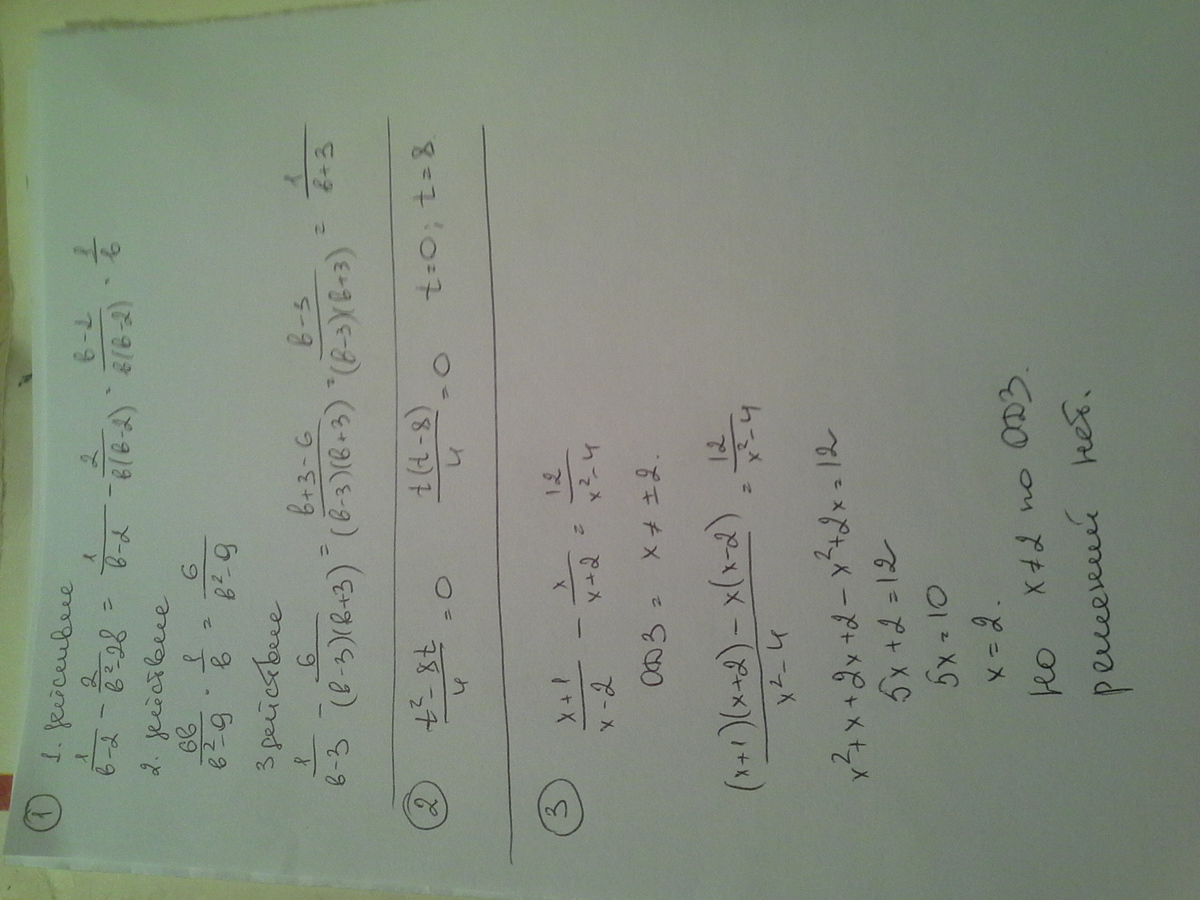 ① 1. действие
1/(в-2) - 2/(в²-2в) = 1/(в-2) - 2/(в(в-2)) = (в-2)/(в(в-2)) = 1/в
2. действие
6в/(в²-9) · 1/в = 6/(в²-9)
3 действие
1/(в-3) - 6/((в-3)(в+3)) = (в+3-6)/((в-3)(в+3)) = (в-3)/((в-3)(в+3)) = 1/(в+3)
② (t²-8t)/4 = 0 t(t-8)/4 = 0 t=0; t=8
③ (x+1)/(x-2) - x/(x+2) = 12/(x²-4)
ОДЗ = x ≠ ±2.
((x+1)(x+2) - x(x-2))/(x²-4) = 12/(x²-4)
x²+x+2x+2-x²+2x=12
5x+2=12
5x=10
x=2.
но x≠2 по ОДЗ.
решений нет.